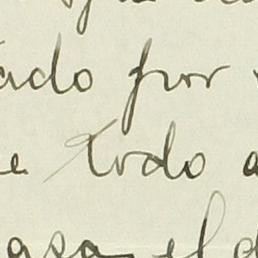 ado por
e todo a
asa el d